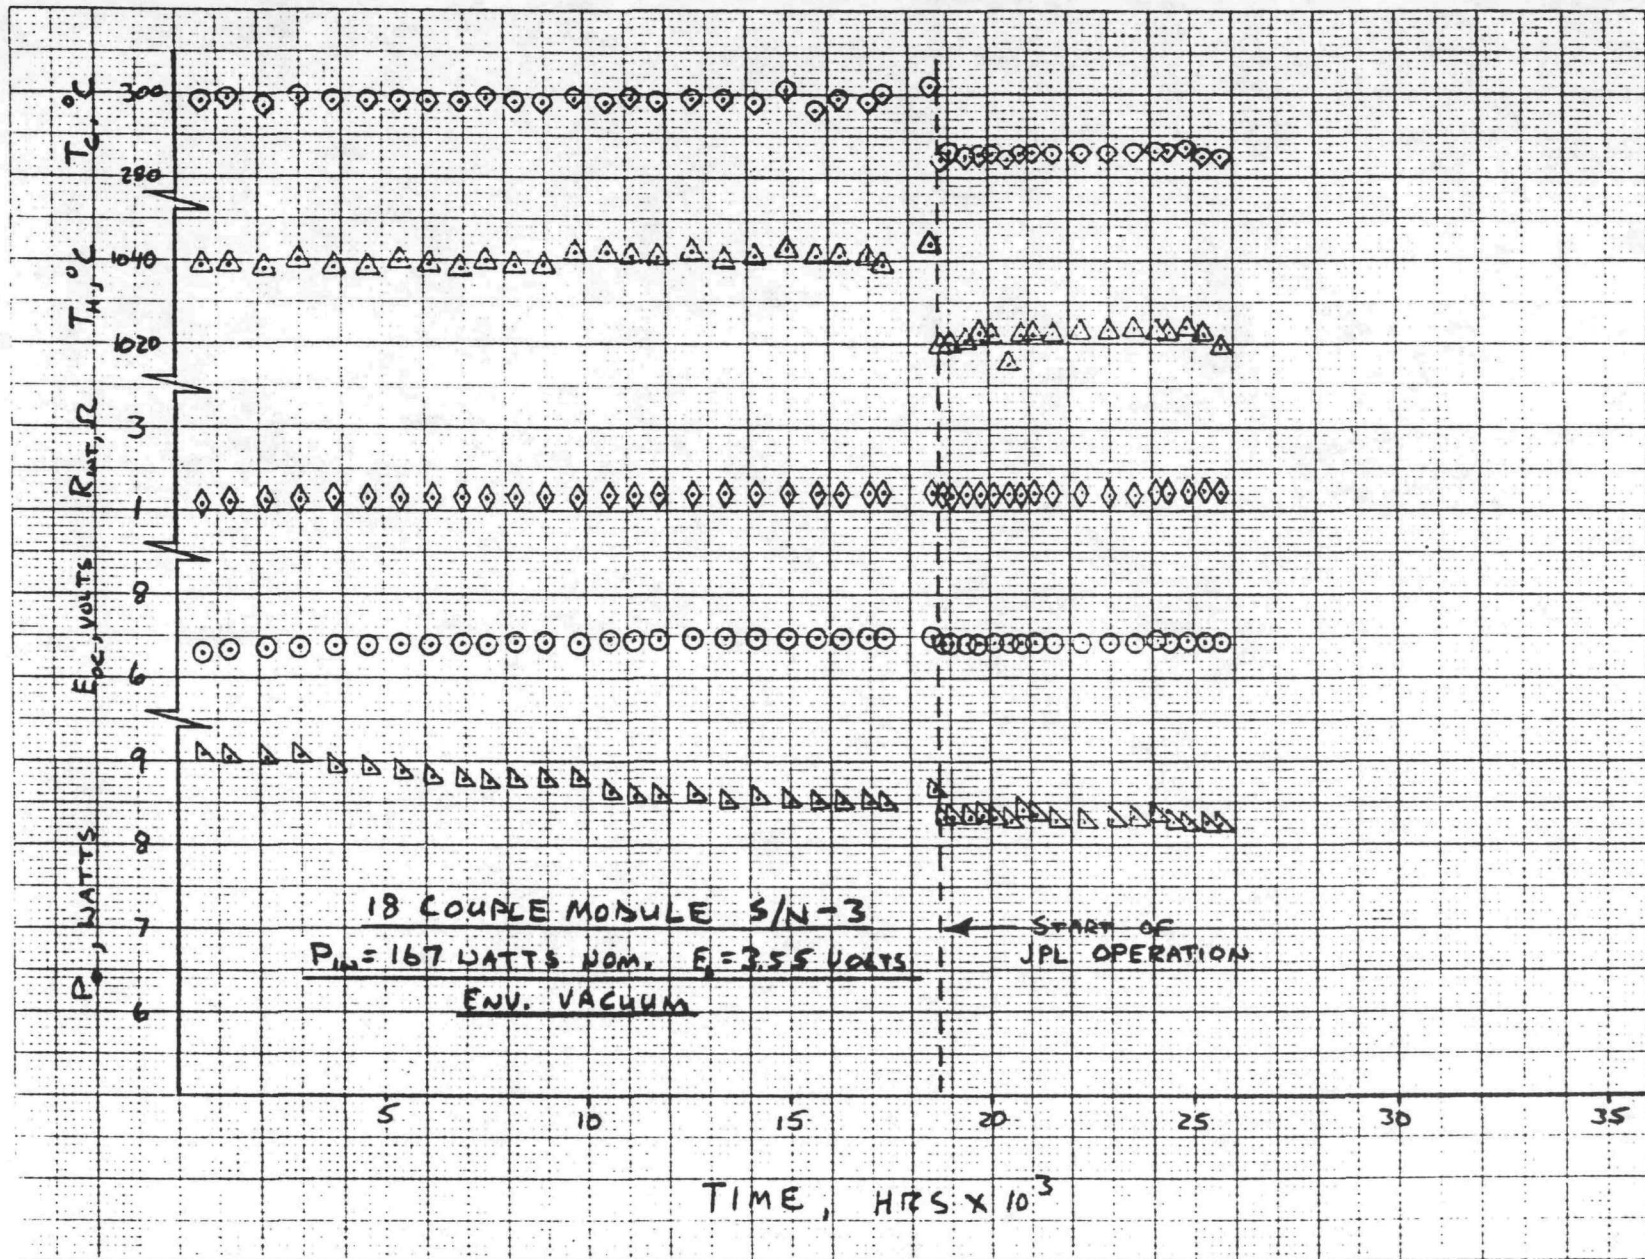 T_C, °C
300
280
T_H, °C
1040
1020
R_INT, Ω
3
1
E_OC, VOLTS
8
6
P_O, WATTS
9
8
7
6
18 COUPLE MODULE S/N-3
P_IN = 167 WATTS NOM. E_L = 3.55 VOLTS
ENV. VACUUM
START OF
JPL OPERATION
5 10 15 20 25 30 35
TIME, HRS X 10³